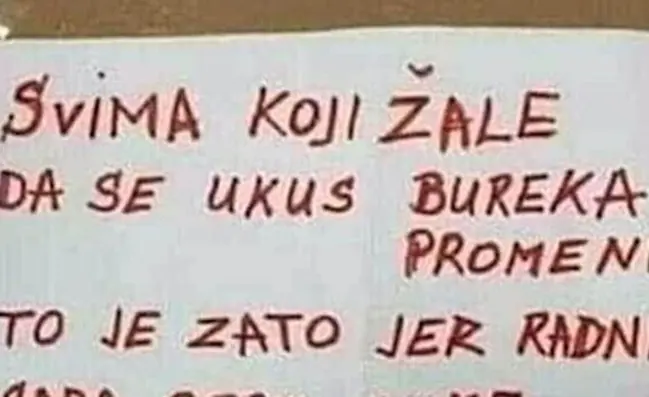 SVIMA KOJI ŽALE
DA SE UKUS BUREKA
PROMENI
TO JE ZATO JER RADNI